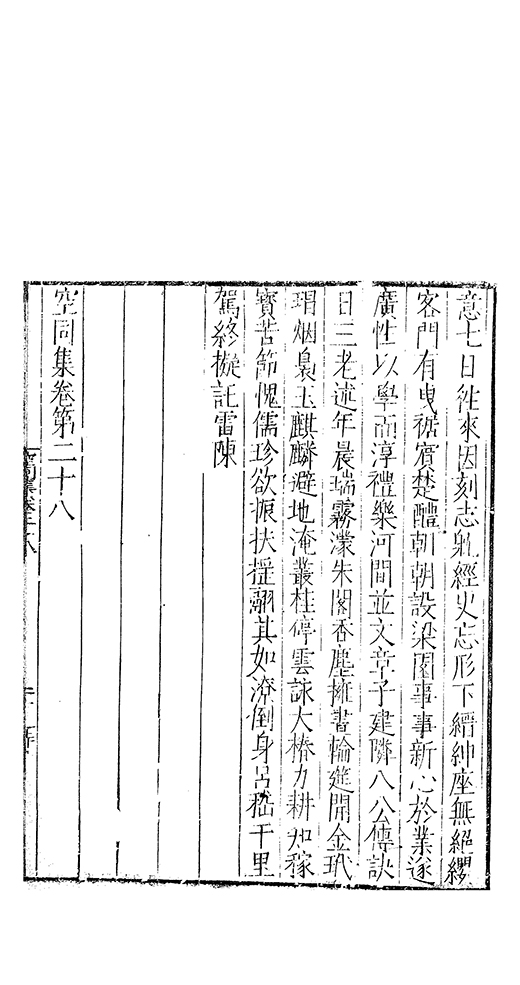 意七日徃來因刻志躭經史忘形下縉紳座無絕纓
客門有曳裾賓楚醴朝朝設梁園事事新心於業遂
廣性以學而淳禮樂河間並文章子建隣八公傳訣
日三老述年晨瑞霧濛朱閣香塵擁畫輪進開金玳
瑁烟裊玉麒麟避地淹叢桂停雲詠大椿力耕知稼
寳苦節愧儒珍欲振扶揺翮其如潦倒身呂嵇千里
駕終擬託雷陳
空同集卷第二十八